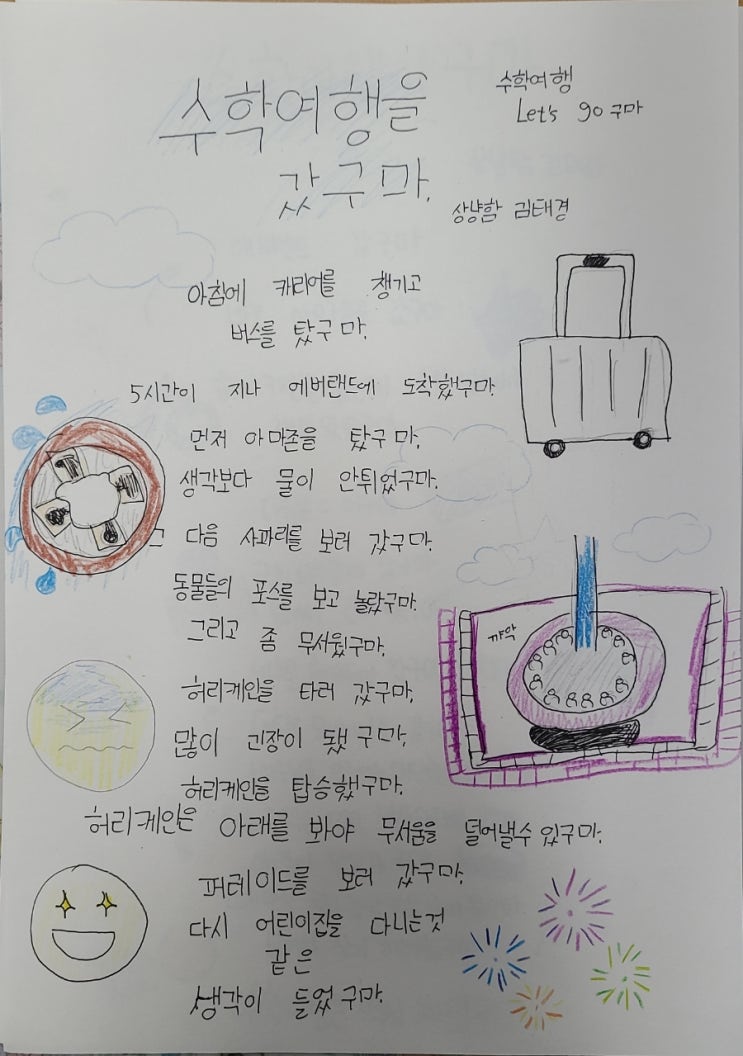 수학여행을
갔구마.
수학여행
Let's go 구마
상냥함 김태경
아침에 캐리어를 챙기고
버스를 탔구마.
5시간이 지나 에버랜드에 도착했구마.
먼저 아마존을 탔구마.
생각보다 물이 안튀었구마.
그 다음 사파리를 보러 갔구마.
동물들의 포스를 보고 놀랐구마.
그리고 좀 무서웠구마.
꺄악
허리케인을 타러 갔구마.
많이 긴장이 됐구마.
허리케인을 탑승했구마.
허리케인은 아래를 봐야 무서움을 덜어낼수 있구마.
퍼레이드를 보러 갔구마.
다시 어린이집을 다니는것
같은
생각이 들었구마.